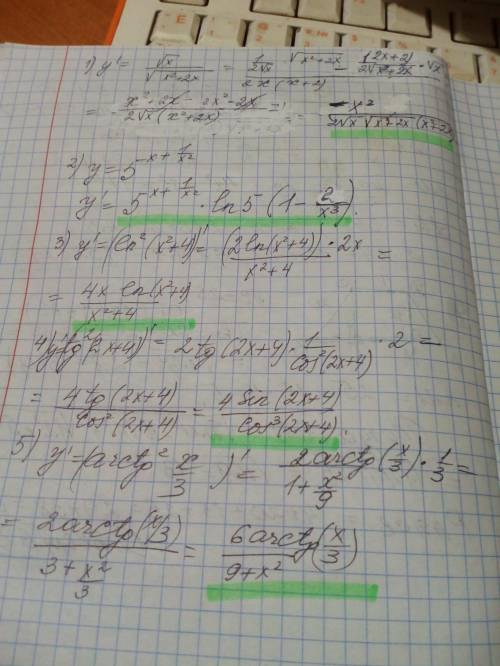 1) y' = √x / √(x²+2x) = (1/(2√x) · √(x²+2x) − (2x+2)/(2√(x²+2x)) · √x) / (x(x+2))
= (x²+2x − 2x²−2x) / (2√x (x²+2x)) = −x² / (2√x √(x²+2x) (x²+2x))
2) y = 5^(x + 1/x²)
y' = 5^(x + 1/x²) · ln5 (1 − 2/x³).
3) y' = (ln²(x²+4))' = (2ln(x²+4)) · 2x / (x²+4) =
= 4x ln(x²+4) / (x²+4)
4) y' (tg²(2x+4))' = 2tg(2x+4) · 1/cos²(2x+4) · 2 =
= 4tg(2x+4) / cos²(2x+4) = 4sin(2x+4) / cos³(2x+4).
5) y' = (arctg² x/3)' = 2arctg(x/3) / (1 + x²/9) · 1/3 =
= 2arctg(x/3) / (3 + x²/3) = 6arctg(x/3) / (9+x²)